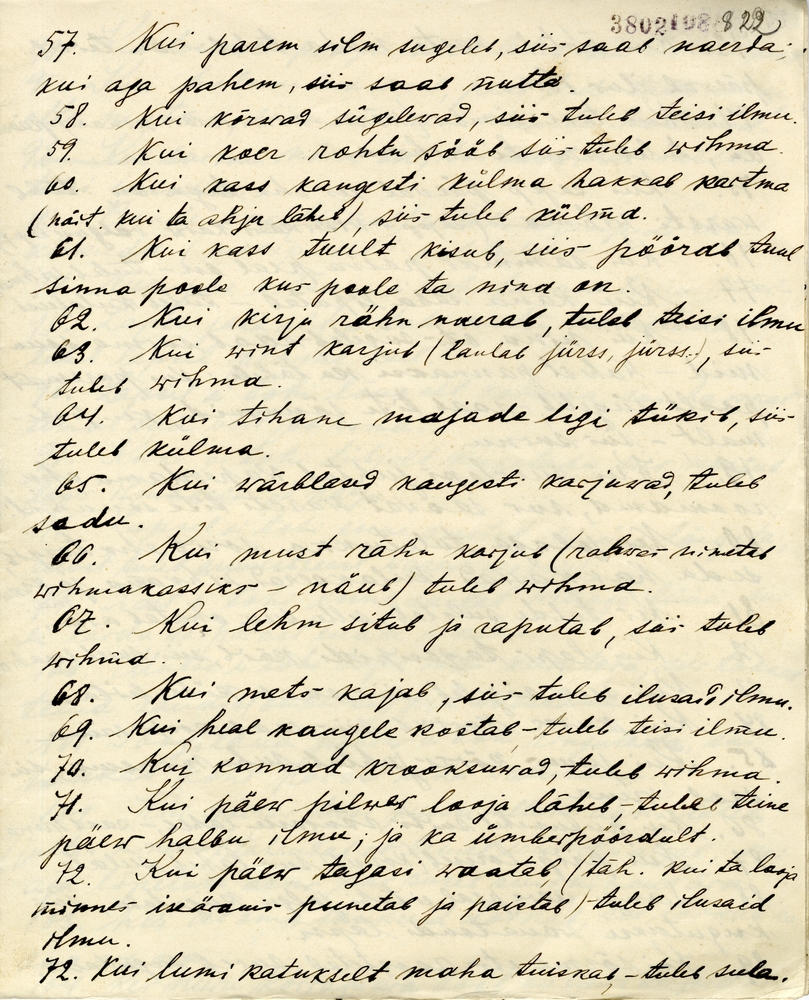 3802 108 822
57. Kui parem silm sugeleb, siis saab naerda;
kui aga pahem, siis saab nutta.
58. Kui kõrwad sügelewad, siis tuleb teisi ilmu.
59. Kui koer rohtu sööb siis tuleb wihma.
60. Kui kass kangesti külma hakkab kartma
(näit. kui ta ahju läheb), siis tuleb külma.
61. Kui kass tuult kisub, siis pöörab tuul
sinna poole kus poole ta nina on.
62. Kui kirju rähn naerab, tuleb teisi ilmu
63. Kui wint karjub (laulab jürss, jürss.), siis
tuleb wihma.
64. Kui tihane majade ligi tükib, siis
tuleb külma.
65. Kui wärblased kangesti karjuwad, tuleb
sadu.
66. Kui must rähn karjub (rahwas nimetab
wihmakassiks – näub) tuleb wihma.
67. Kui lehm situb ja raputab, siis tuleb
wihma.
68. Kui mets kajab, siis tuleb ilusaid ilmu.
69. Kui heal kaugele kostab – tuleb teisi ilmu.
70. Kui konnad krooksuwad, tuleb wihma.
71. Kui päew pilwes looja läheb, – tuleb teine
päew halbu ilmu; ja ka ümberpöördult.
72. Kui päew tagasi waatab, (täh. kui ta looja
minnes iseäranis punetab ja paistab) – tuleb ilusaid
ilmu.
72. Kui lumi katukselt maha tuiskab, – tuleb sula.